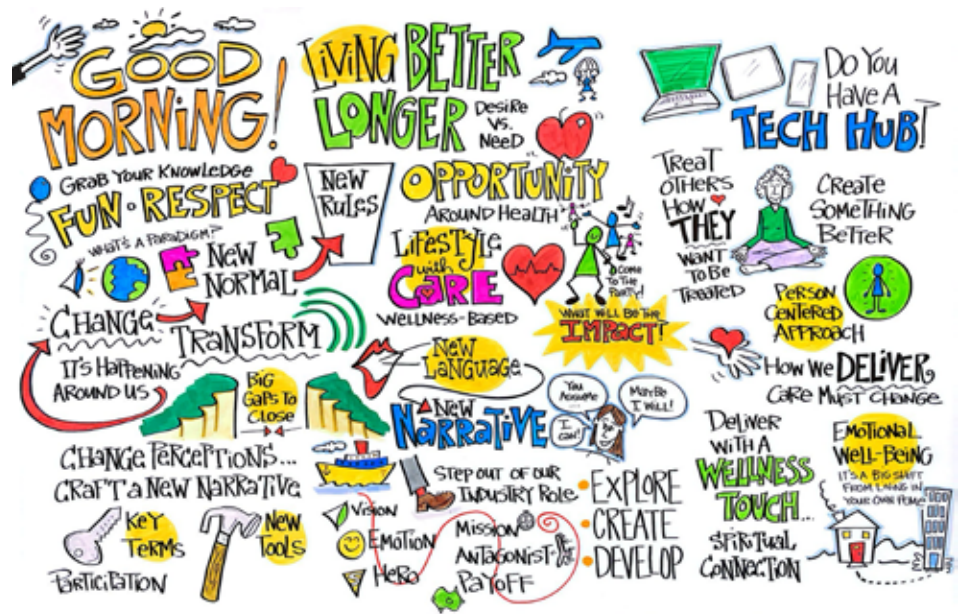 GOOD
MORNING!
GRAB YOUR KNOWLEDGE
FUN • RESPECT
WHAT'S A PARADIGM?
NEW
NORMAL
NEW
RULES
CHANGE
TRANSFORM
IT'S HAPPENING
AROUND US
BIG
GAPS TO
CLOSE
CHANGE PERCEPTIONS...
CRAFT A NEW NARRATIVE
KEY
TERMS
NEW
TOOLS
PARTICIPATION
LIVING BETTER
LONGER
DESIRE
VS.
NEED
OPPORTUNITY
AROUND HEALTH
LIFESTYLE
with
CARE
WELLNESS-BASED
COME
TO THE
PARTY!
WHAT WILL BE THE
IMPACT!
NEW
LANGUAGE
A NEW
NARRATIVE
YOU
ASSUME
I
CAN!
MAYBE
I WILL!
STEP OUT OF OUR
INDUSTRY ROLE
VISION
EMOTION
HERO
MISSION
ANTAGONIST
PAYOFF
• EXPLORE
• CREATE
• DEVELOP
DO YOU
HAVE A
TECH HUB!
TREAT
OTHERS
HOW
THEY
WANT
TO BE
TREATED
CREATE
SOMETHING
BETTER
PERSON
CENTERED
APPROACH
HOW WE DELIVER
CARE MUST CHANGE
DELIVER
WITH A
WELLNESS
TOUCH...
SPIRITUAL
CONNECTION
EMOTIONAL
WELL-BEING
IT'S A BIG SHIFT
FROM LIVING IN
YOUR OWN HOME